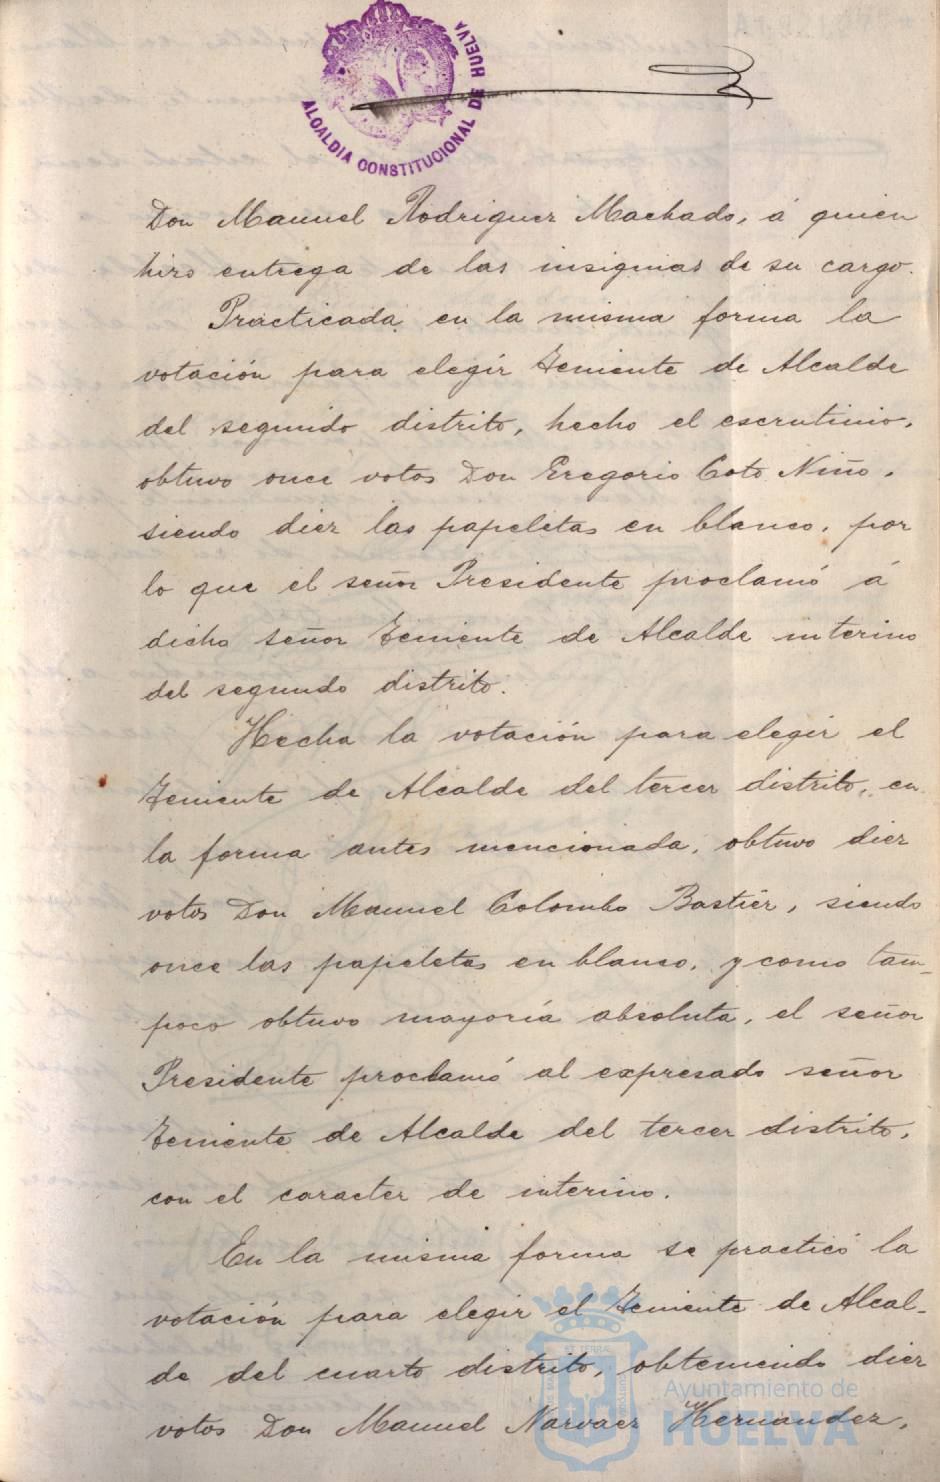 ALCALDIA CONSTITUCIONAL DE HUELVA
Don Manuel Rodriguez Machado, á quien
hizo entrega de las insignias de su cargo.
Practicada en la misma forma la
votación para elegir Teniente de Alcalde
del segundo distrito, hecho el escrutinio,
obtuvo once votos Don Gregorio Coto Niño,
siendo diez las papeletas en blanco, por
lo que el señor Presidente proclamó á
dicho señor Teniente de Alcalde interino
del segundo distrito.
Hecha la votación para elegir el
Teniente de Alcalde del tercer distrito, en
la forma antes mencionada, obtuvo diez
votos Don Manuel Colombo Bastier, siendo
once las papeletas en blanco, y como tam-
poco obtuvo mayoría absoluta, el señor
Presidente proclamó al expresado señor
Teniente de Alcalde del tercer distrito,
con el caracter de interino.
En la misma forma se practicó la
votación para elegir el Teniente de Alcal-
de del cuarto distrito, obteniendo diez
votos Don Manuel Narvaez Hernandez,
Ayuntamiento de
HUELVA